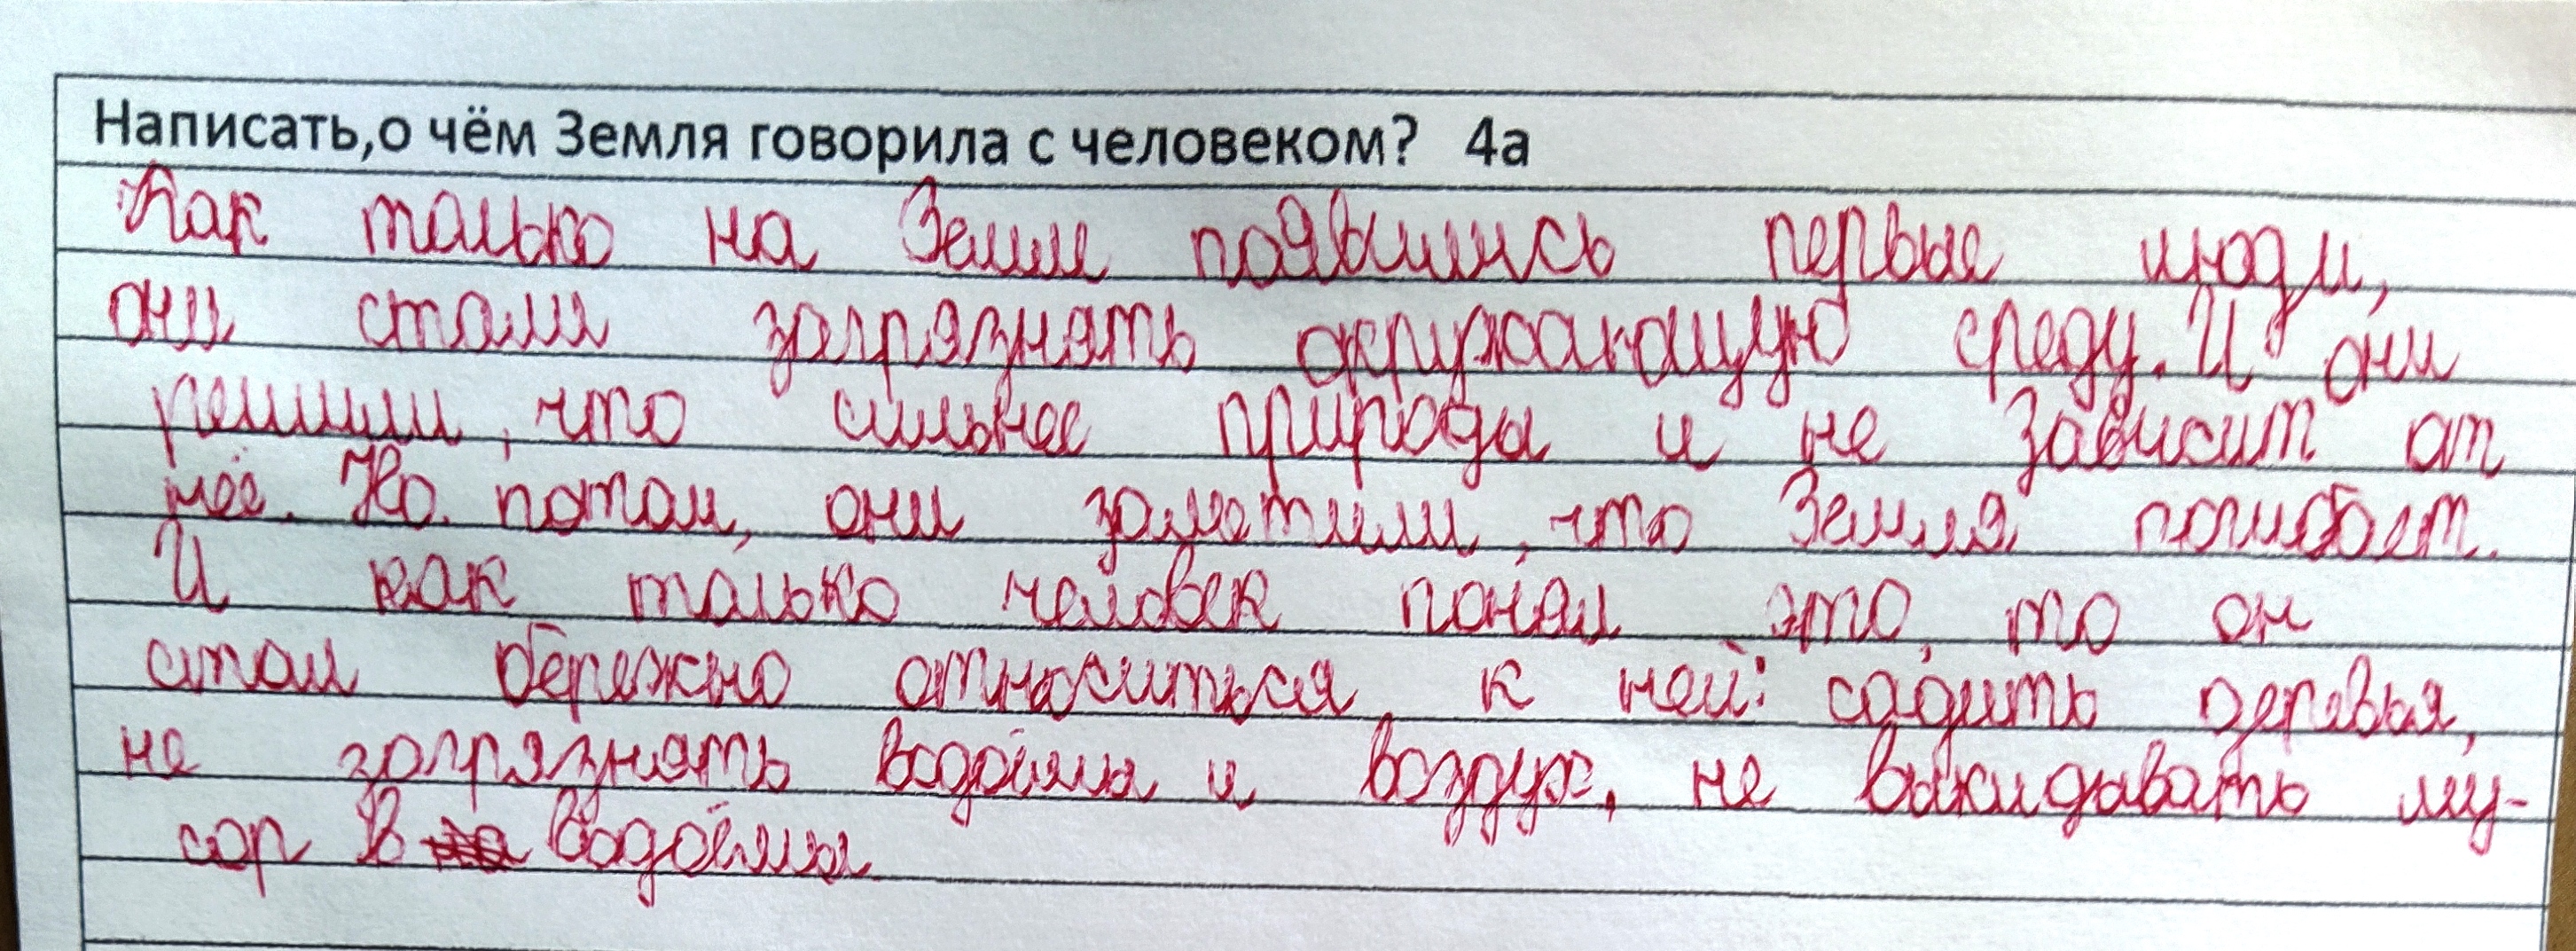 Написать,о чём Земля говорила с человеком? 4а
Как только на Земле появились первые люди,
они стали загрязнять окружающую среду. И они
решили, что сильнее природы и не зависит от
неё. Но потом, они заметили, что Земля погибает.
И как только человек понял это, то он
стал бережно относиться к ней: садить деревья,
не загрязнять водоёмы и воздух, не выкидавать му-
сор в водоёмы